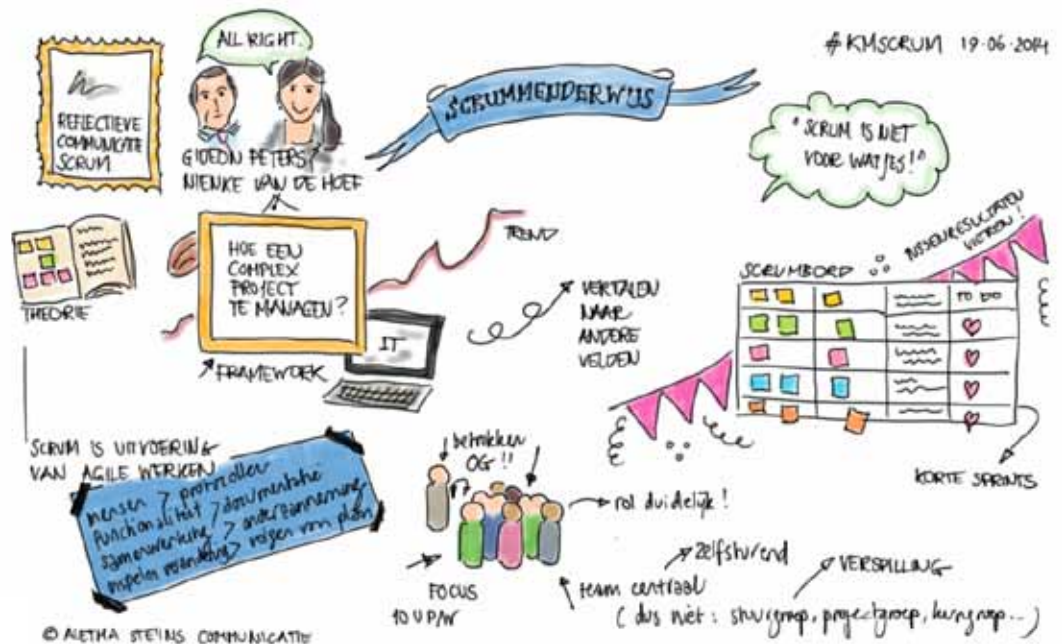 ALL RIGHT.
# KMSCRUM 19-06-2014
REFLECTIEVE
COMMUNICATIE
SCRUM
GIDEON PETERS /
NIENKE VAN DE HOEF
SCRUMMENDERWIJS
"SCRUM IS NIET
VOOR WATJES!"
THEORIE
HOE EEN
COMPLEX
PROJECT
TE MANAGEN?
FRAMEWORK
TREND
IT
VERTALEN
NAAR
ANDERE
VELDEN
TUSSENRESULTATEN
VIEREN!
SCRUMBORD
TO DO
KORTE SPRINTS
SCRUM IS UITVOERING
VAN AGILE WERKEN
mensen > protocollen
functionaliteit > documentatie
samenwerking > onderhandeling
inspelen verandering > volgen van plan
betrekken
OG!!
rol duidelijk!
FOCUS
10 U P/W
team centraal
zelfsturend
VERSPILLING
(dus niet: stuurgroep, projectgroep, kerngroep...)
© ALETHA STEIJNS COMMUNICATIE